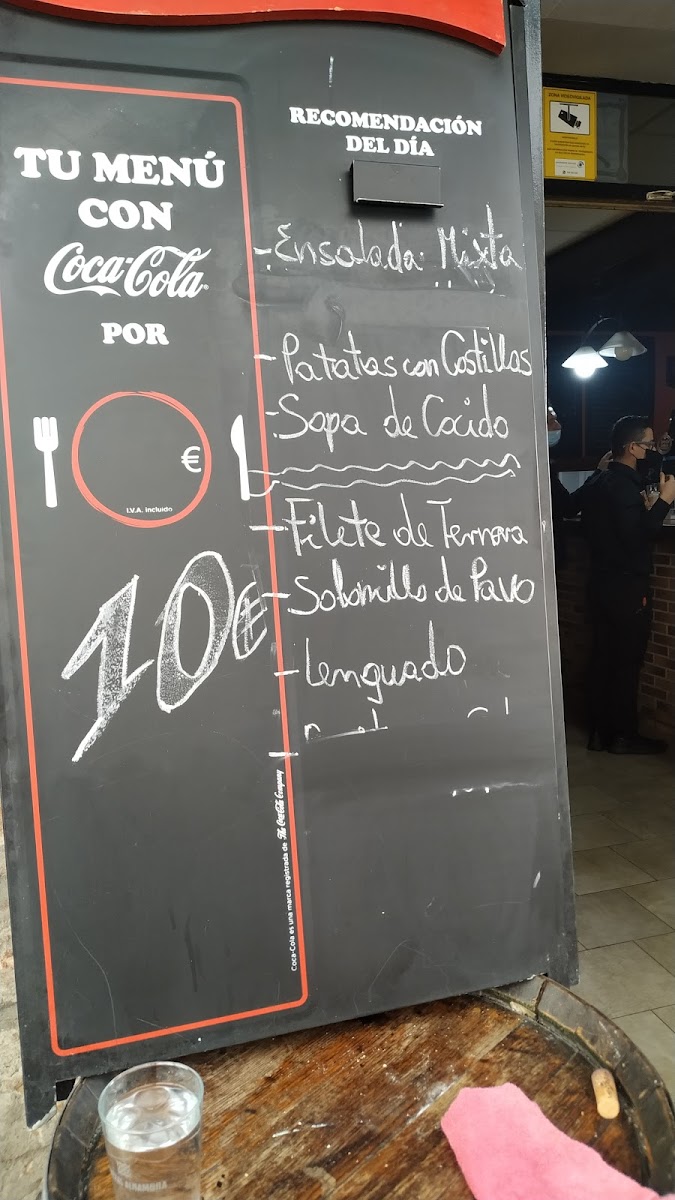 TU MENÚ
CON
Coca-Cola
POR
€
I.V.A. incluido
10€
Coca-Cola es una marca registrada de The Coca-Cola Company
RECOMENDACIÓN
DEL DÍA
- Ensalada Mixta
- Patatas con Costillas
- Sopa de Cocido
- Filete de Ternera
- Solomillo de Pavo
- Lenguado
ZONA VIDEOVIGILADA
ALHAMBRA